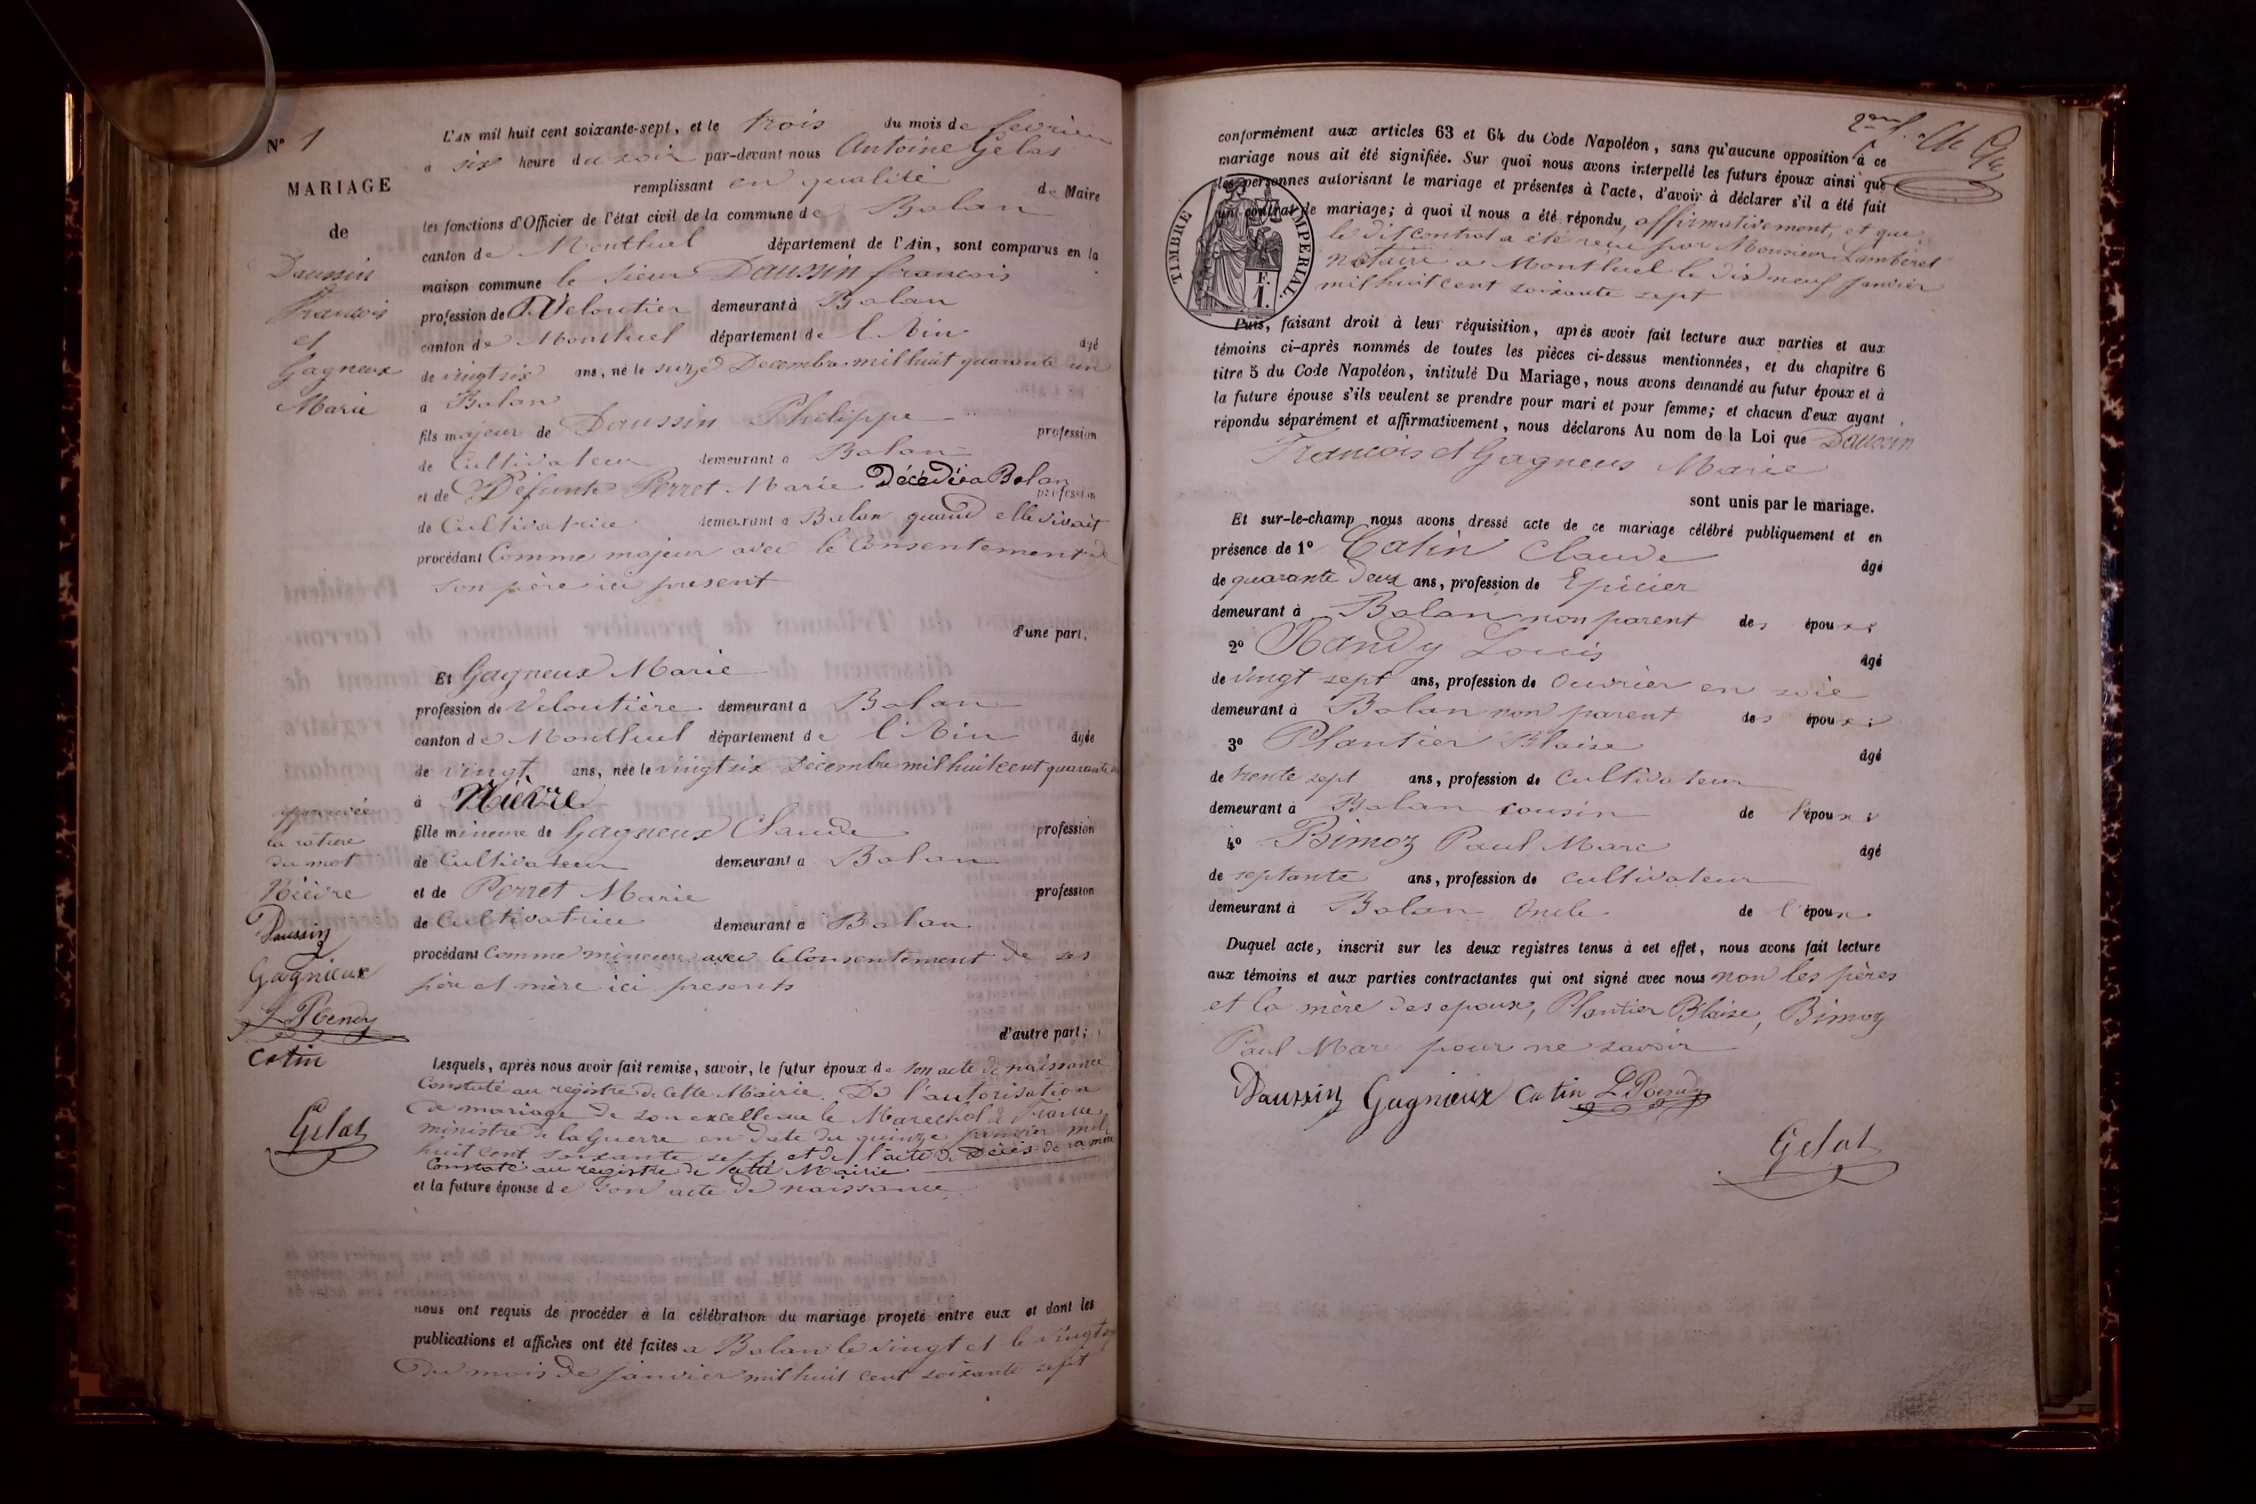 N° 1
MARIAGE
de
Daussin
François
et
Gagneux
Marie
L'AN mil huit cent soixante-sept, et le trois du mois de fevrier
a six heure du soir par-devant nous Antoine Gelas
remplissant en qualité de Maire
les fonctions d'Officier de l'état civil de la commune de Balan
canton de Montluel département de l'Ain, sont comparus en la
maison commune le sieur Daussin françois
profession de Veloutier demeurant à Balan
canton de Montluel département de l'Ain âgé
de vingt six ans, né le onze Decembre mil huit quarante un
a Balan
fils majeur de Daussin Philippe profession
de Cultivateur demeurant a Balan
et de Défunte Perret Marie Décédée a Balan profession
de Cultivatrice demeurant a Balan quand elle vivait
procédant Comme majeur avec le Consentement de
son père ici present
d'une part,
Et Gagneux Marie
profession de Veloutière demeurant a Balan
canton de Montluel département de l'Ain âgée
de vingt ans, née le vingt six Decembre mil huit cent quarante
à Nièvre
fille mineure de Gagneux Claude profession
de Cultivateur demeurant a Balan
et de Perret Marie profession
de Cultivatrice demeurant a Balan
procédant Comme mineure avec le Consentement de ses
père et mère ici presents
d'autre part;
approuvée
la rature
du mot
Nièvre
Daussin
Gagnieux
Catin
Gelas
Lesquels, après nous avoir fait remise, savoir, le futur époux de son acte de naissance
Constaté au registre de Cette Mairie. De l'autorisation
de mariage de son excellence le Marechal de France
ministre de la Guerre en date du quinze janvier mil
huit cent soixante sept, et de l'acte de Décès de sa mère
Constaté au registre de cette Mairie
et la future épouse de son acte de naissance
nous ont requis de procéder à la célébration du mariage projeté entre eux et dont les
publications et affiches ont été faites a Balan le vingt et le vingt
du mois de janvier mil huit cent soixante sept
conformément aux articles 63 et 64 du Code Napoléon, sans qu'aucune opposition à ce
mariage nous ait été signifiée. Sur quoi nous avons interpellé les futurs époux ainsi que
les personnes autorisant le mariage et présentes à l'acte, d'avoir à déclarer s'il a été fait
un contrat de mariage; à quoi il nous a été répondu affirmativement, et que
le dit contrat a été reçu par Monsieur Lamberet
notaire a Montluel le dix neuf janvier
mil huit cent soixante sept
TIMBRE IMPERIAL.
F.
1.
Puis, faisant droit à leur réquisition, après avoir fait lecture aux parties et aux
témoins ci-après nommés de toutes les pièces ci-dessus mentionnées, et du chapitre 6
titre 5 du Code Napoléon, intitulé Du Mariage, nous avons demandé au futur époux et à
la future épouse s'ils veulent se prendre pour mari et pour femme; et chacun d'eux ayant
répondu séparément et affirmativement, nous déclarons Au nom de la Loi que Daussin
François et Gagneux Marie
sont unis par le mariage.
Et sur-le-champ nous avons dressé acte de ce mariage célébré publiquement et en
présence de 1° Catin Claude âgé
de quarante deux ans, profession de Epicier
demeurant à Balan non parent des époux
2° Louis âgé
de vingt sept ans, profession de Ouvrier en soie
demeurant à Balan non parent des époux
3° Plantier Blaise âgé
de trente sept ans, profession de Cultivateur
demeurant a Balan cousin de l'époux
4° Bimoz Paul Marc âgé
de septante ans, profession de Cultivateur
demeurant à Balan Oncle de l'époux
Duquel acte, inscrit sur les deux registres tenus à cet effet, nous avons fait lecture
aux témoins et aux parties contractantes qui ont signé avec nous non les pères
et la mère des epoux, Plantier Blaise, Bimoz
Paul Marc pour ne savoir
Daussin Gagnieux Catin
Gelas